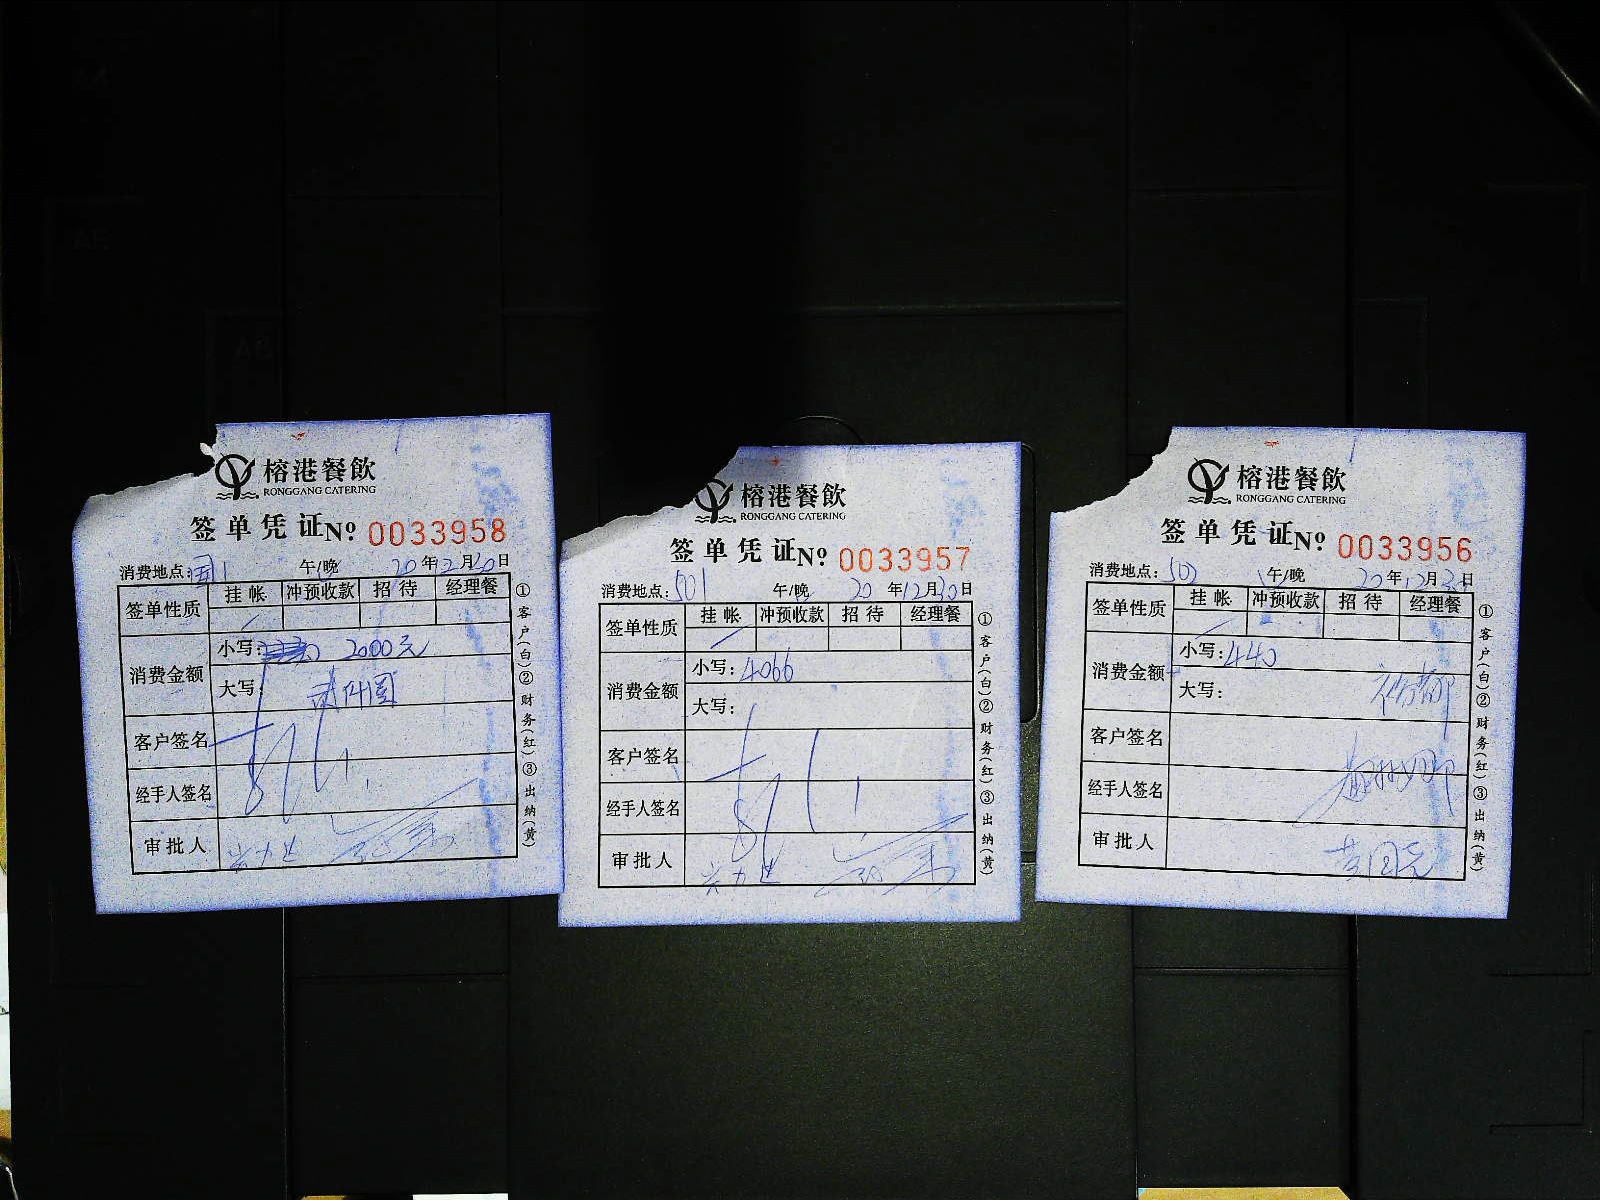 榕港餐飲
RONGGANG CATERING
签单凭证№ 0033958
消费地点: 午/晚 20年12月30日
签单性质 挂帐 冲预收款 招待 经理餐
消费金额
小写: 2000元
大写: 贰仟圆
客户签名
经手人签名
审批人
①客户(白)②财务(红)③出纳(黄)
榕港餐飲
RONGGANG CATERING
签单凭证№ 0033957
消费地点: 501 午/晚 20年12月30日
签单性质 挂帐 冲预收款 招待 经理餐
消费金额
小写: 4066
大写:
客户签名
经手人签名
审批人
①客户(白)②财务(红)③出纳(黄)
榕港餐飲
RONGGANG CATERING
签单凭证№ 0033956
消费地点: 午/晚 20年12月日
签单性质 挂帐 冲预收款 招待 经理餐
消费金额
小写: 440
大写:
客户签名
经手人签名
审批人
①客户(白)②财务(红)③出纳(黄)